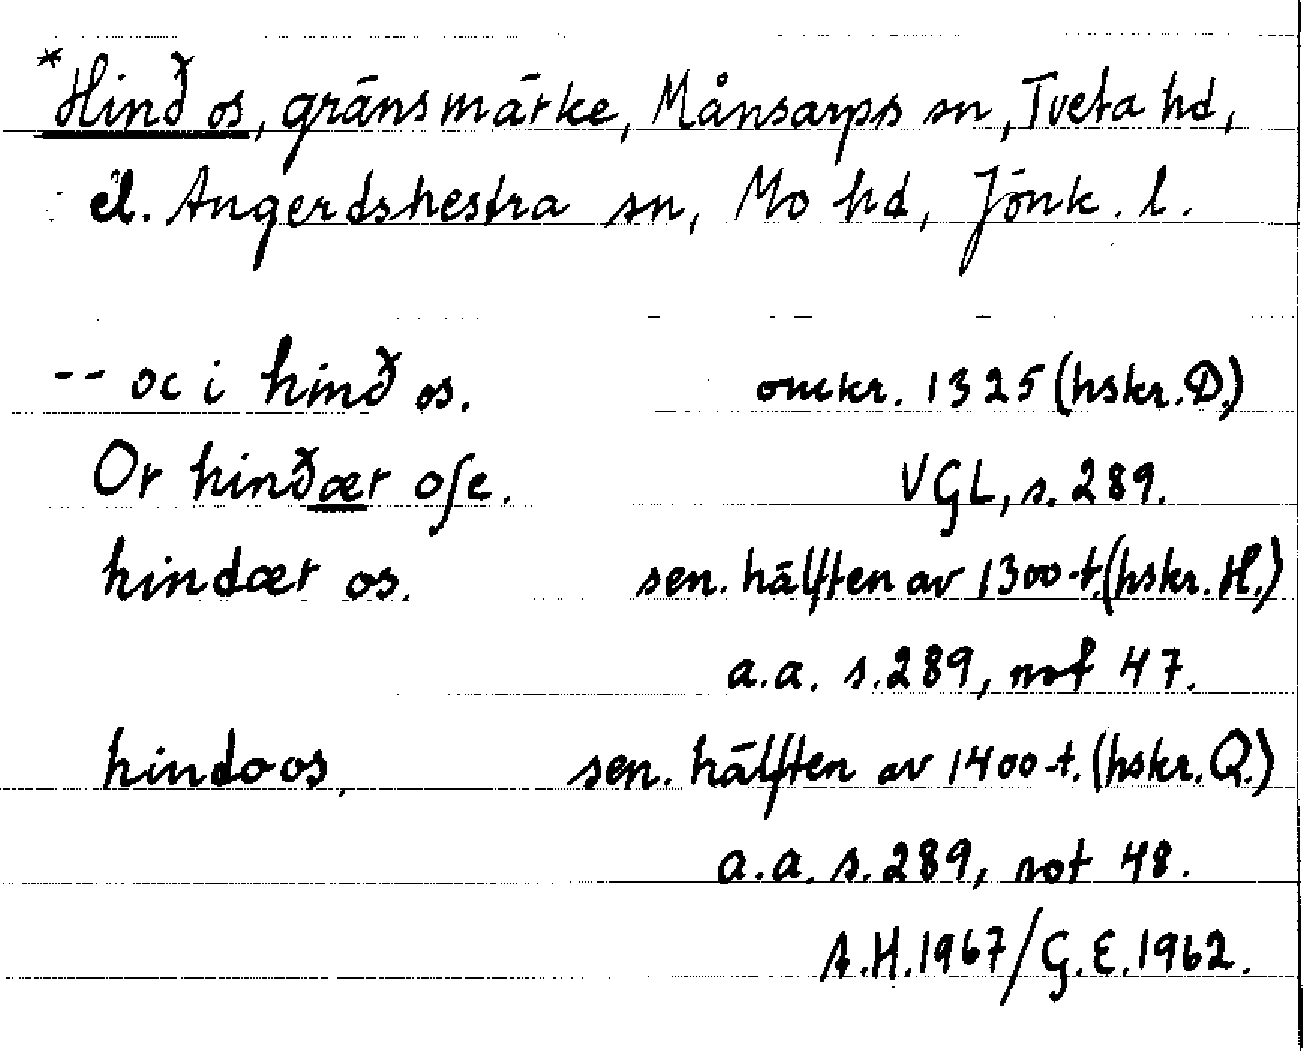 *Hinð os, gränsmärke, Månsarps sn, Tveta hd,
el. Angerdshestra sn, Mo hd, Jönk. l.
-- oc i hinð os. omkr. 1325 (hskr. D.)
Or hinðær oſe. VGL, s. 289.
hindær os. sen. hälften av 1300-t. (hskr. H.)
a.a. s. 289, not 47.
hindoos. sen. hälften av 1400-t. (hskr. Q.)
a.a. s. 289, not 48.
A.H. 1967/G.E. 1962.